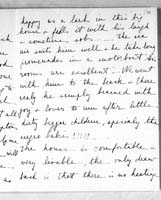 happy as a lark in this big
house - fill it with his laugh
- sometimes sobs - the sea
air suits him well - he take long
promenades in a motorboat his
rooms are excellent - We went
with him to the beach - there
really he simply beamed with
joy - loves to run after little
dirty bigger children, specially the
negro babies !!!!!
The house is comfortable -
very livable, the only draw-
back is that there is no heating